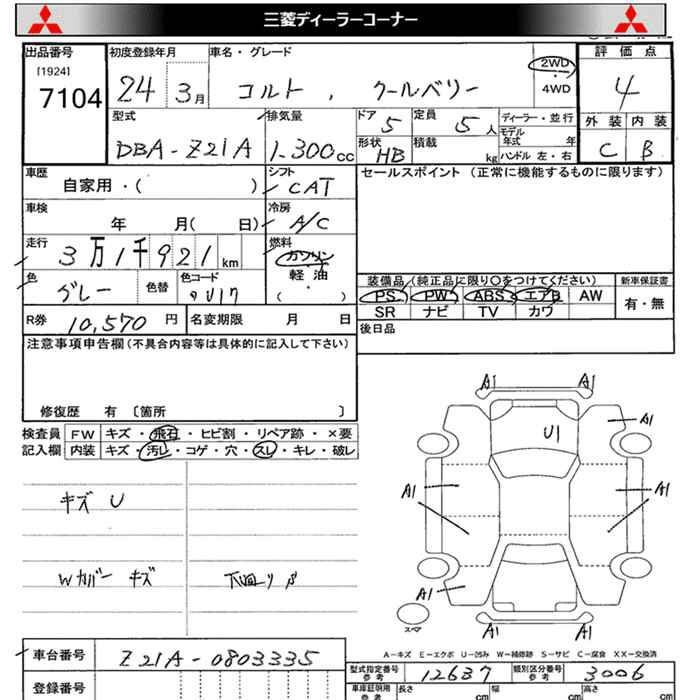 三菱ディーラーコーナー
出品番号 初度登録年月 車名・グレード 評価点
[1924]
7104 24 3月 コルト . クールベリー 2WD 4WD 4
型式 排気量 ドア 定員 ディーラー・並行 外装 内装
DBA-Z21A 1.300cc 5 5人 モデル年式 年 C B
形状 HB 積載 kg ハンドル 左・右
車歴 シフト セールスポイント(正常に機能するものに限ります)
自家用・( ) CAT
車検 冷房
年 月( 日) A/C
走行 燃料
3万1千921km ガソリン
軽油
( ・ )
色 グレー 色替 色コード
装備品(純正品に限り○をつけてください) 新車保証書
PS PW ABS エアB AW 有・無
SR ナビ TV カワ
R券 10,570円 名変期限 月 日 後日品
注意事項申告欄(不具合内容等は具体的に記入して下さい)
修復歴 有 〔箇所 〕
検査員 FW キズ・飛石・ヒビ割・リペア跡・×要
記入欄 内装 キズ・汚レ・コゲ・穴・スレ・キレ・破レ
キズ U
Wカバー キズ 下回りサビ
A1 A1
A1
U1
A1 A1
A1
A1 A1
スペア
A-キズ E-エクボ U-凹み W-補修跡 S-サビ C-腐食 XX-交換済
車台番号 Z21A-0803335
型式指定番号 参考 12637 類別区分番号 参考 3006
登録番号 車庫証明用 参考 長さ cm 幅 cm 高さ cm